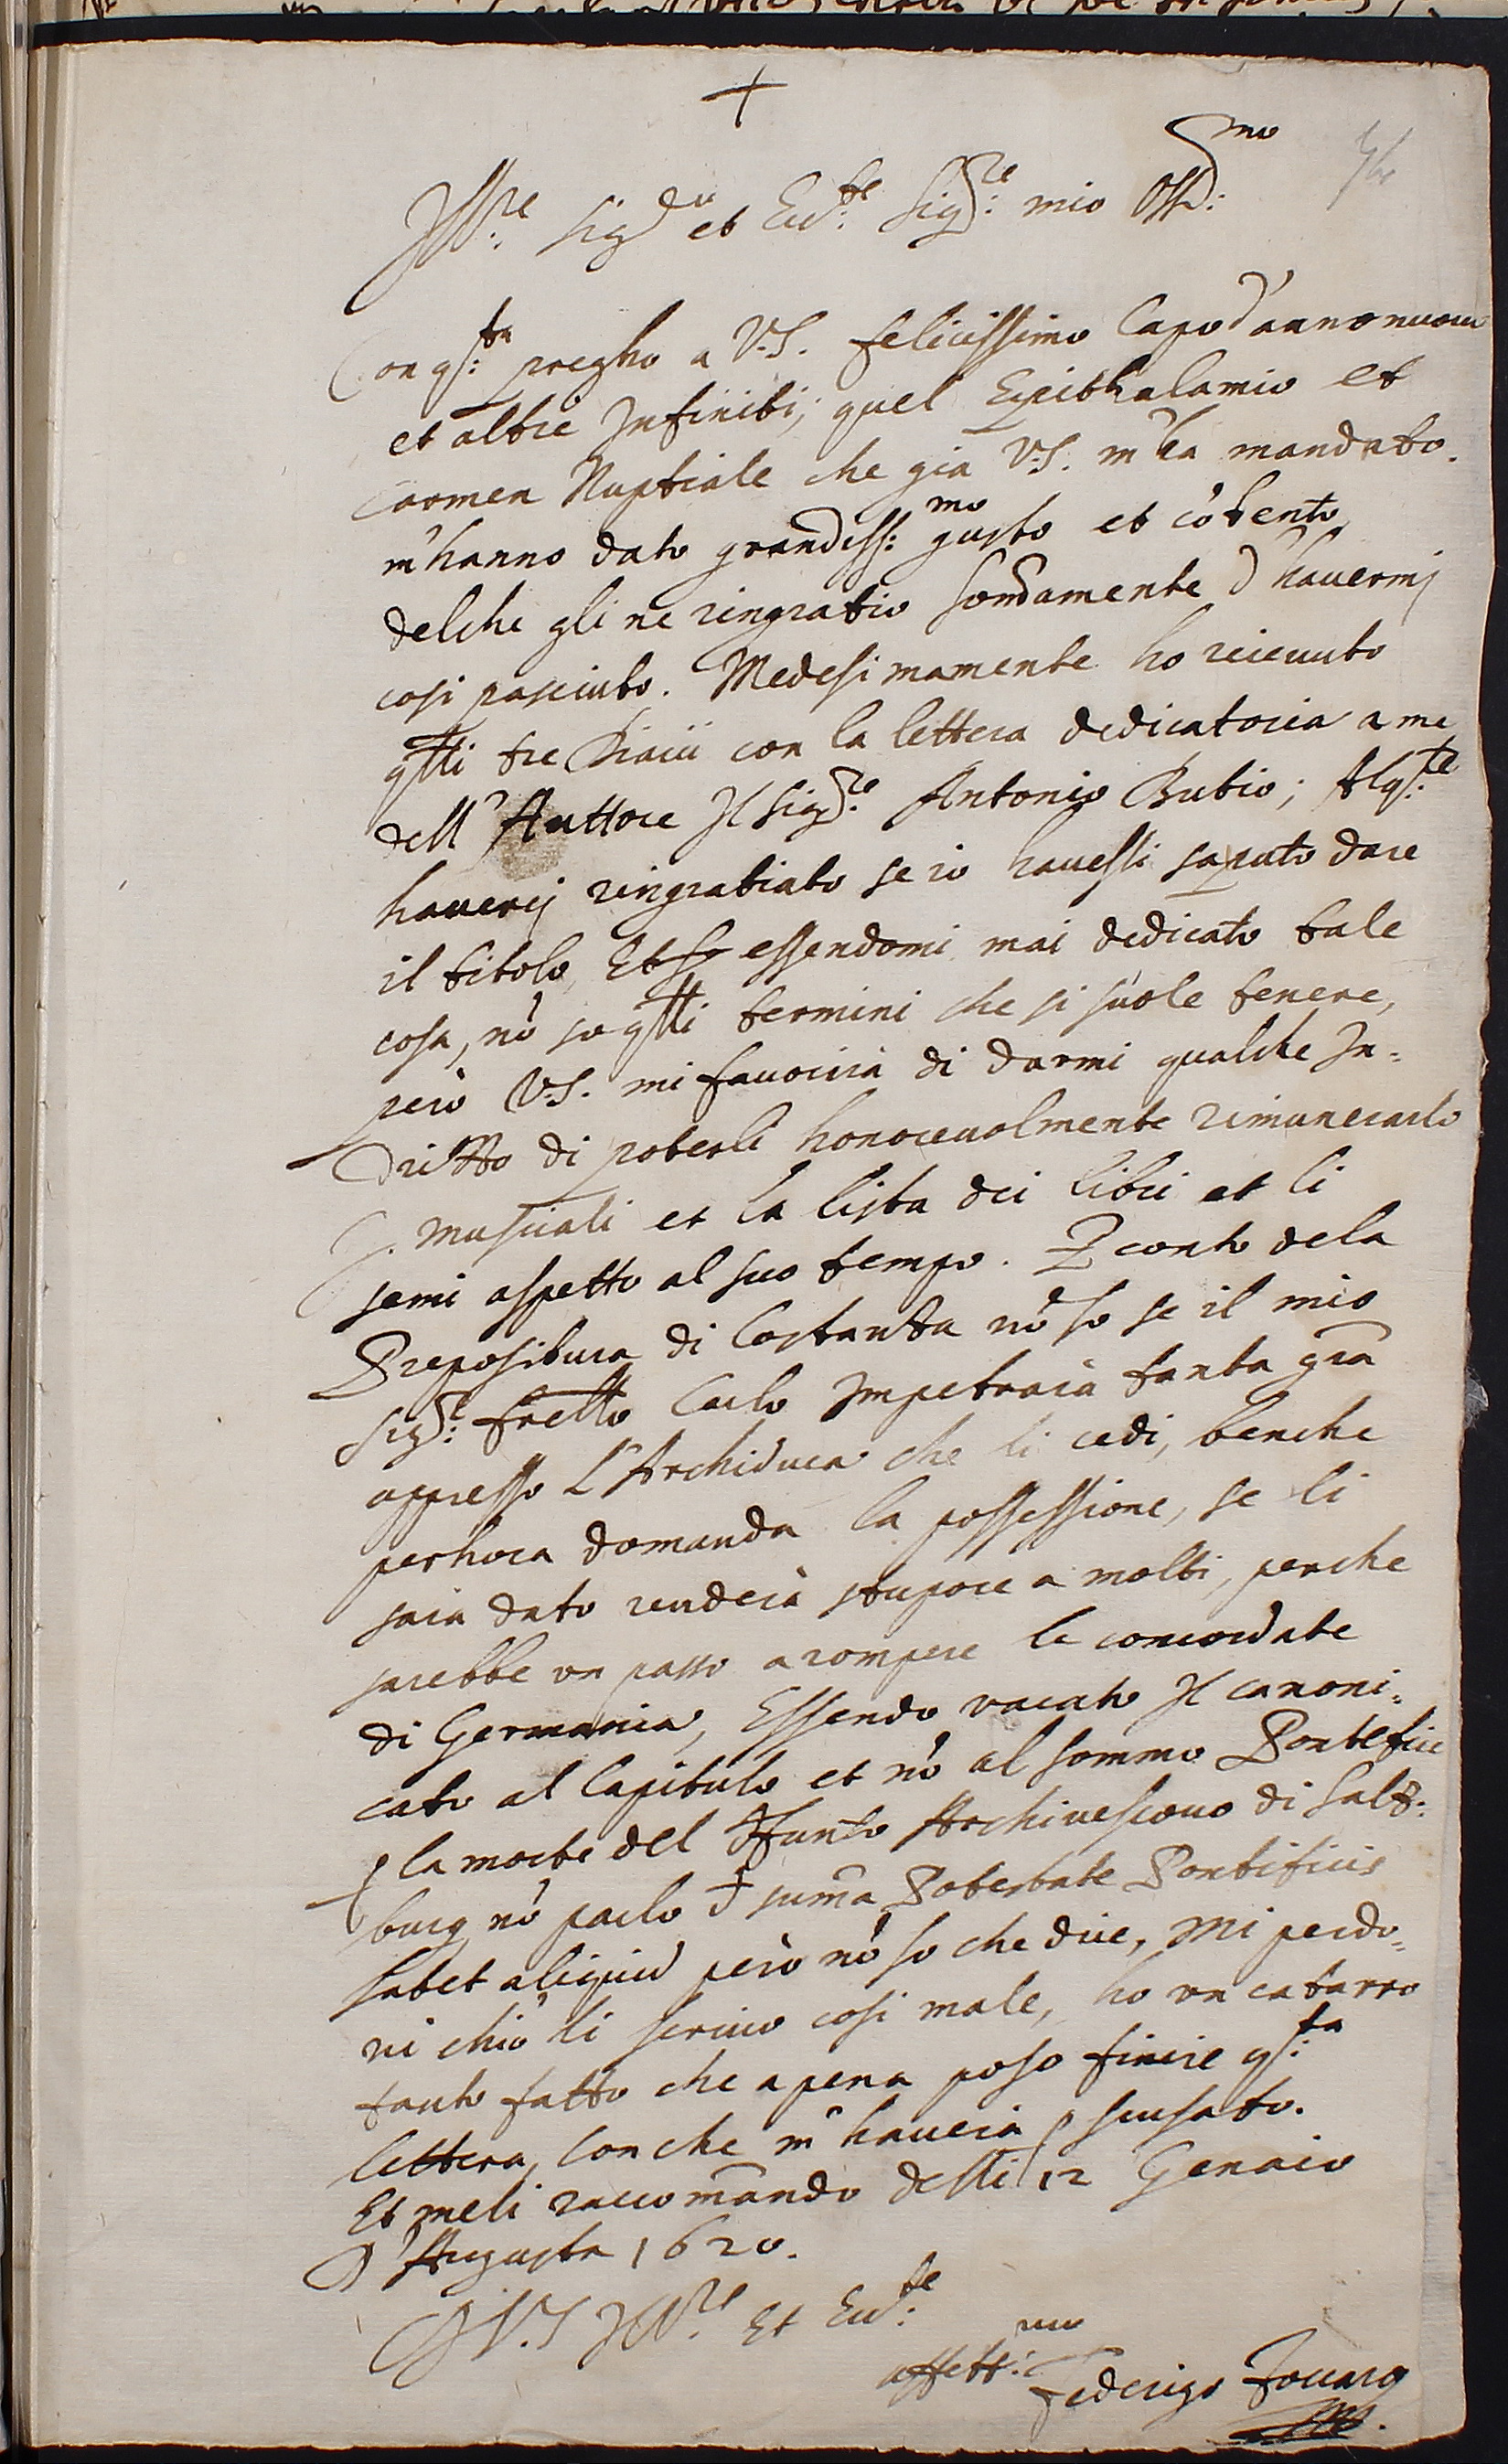 +
Ill.re Sig.r et Ecc.te Sig.re mio Oss.mo
Con q.ta pregho a V.S. felicissimo Capo d'anno nuovo
et altre Infiniti; quel Epithalamio et
Carmen Nuptiale che gia V.S. m'ha mandato.
m'hanno dato grandiss.mo gusto et cõtento
delche gli ne ringratio d'havermj
cosi pasciuto. Medesimamente ho ricevuto
q̃lli tre con la lettera dedicatoria a me
dell'Auttore Il Sig.re Antonio Butio; Alq.le
haverij ringratiato se io havessi saputo dare
il titolo, Et essendomi mai dedicato tale
cosa, nõ so q̃lli termini che si suole tenere,
però V.S. mi favorirà di darmi qualche In=
dritto di poterli honorevolmente rimunerarlo
musicali et la lista dei libri et li
semi aspetto al suo tempo. P conto dela
Prepositura di Costantza nõ so se il mio
Sig.r fr̃ello Carlo Impetrarà tanta gr̃a
appresso L'Archiduca che li cedi, benche
perhora domanda la possessione, se li
sara dato renderà stupore a molti, perche
sarebbe un passo a rompere le concordate
di Germania, Essendo vacato Il canoni=
cato al Capitulo et nõ al sommo Pontefice
p la morte del Arcivescovo di Saltz=
burg nõ parlo d sum̃a Potestate Pontificis
habet aliquid però nõ so che dire, Mi perdo=
ni chio li scrivo cosi male, ho un catarro
tanto fatto che apena poso finire q.ta
lettera, Con che m'haverà p scusato.
Et meli raccom̃ando delli 12 Genaio
D'Augusta 1620.
D V.S Ill.re Et Ecc.te
affett.mo
Federigo